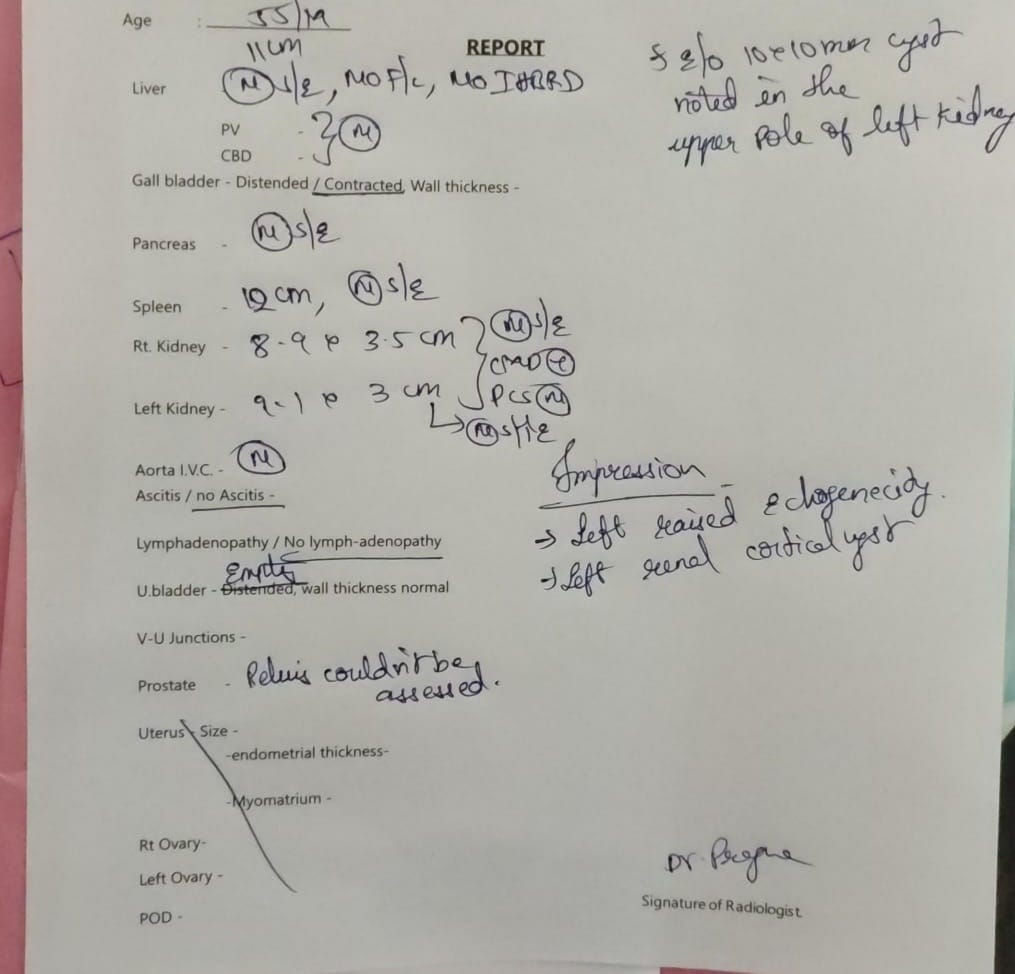 Age : 55/M
REPORT
11 cm
Liver (N) s/e, No F/c, No IHBRD
PV -
CBD - } (N)
Gall bladder - Distended / Contracted, Wall thickness -
Pancreas - (N) s/e
Spleen - 12 cm, (N) s/e
Rt. Kidney - 8.9 x 3.5 cm } (N) s/e
CMD (+)
Left Kidney - 9.1 x 3 cm PCS (N)
Aorta I.V.C. - (N)
Ascitis / no Ascitis -
Lymphadenopathy / No lymph-adenopathy
Empty
U.bladder - Distended, wall thickness normal
V-U Junctions -
Prostate - Pelvis couldn't be
assessed.
Uterus - Size -
-endometrial thickness-
-Myomatrium -
Rt Ovary-
Left Ovary -
POD -
e/o 10x10mm cyst
noted in the
upper pole of left kidney
Impression -
→ Left raised echogenecidy.
→ Left renal cortical cyst
Signature of Radiologist